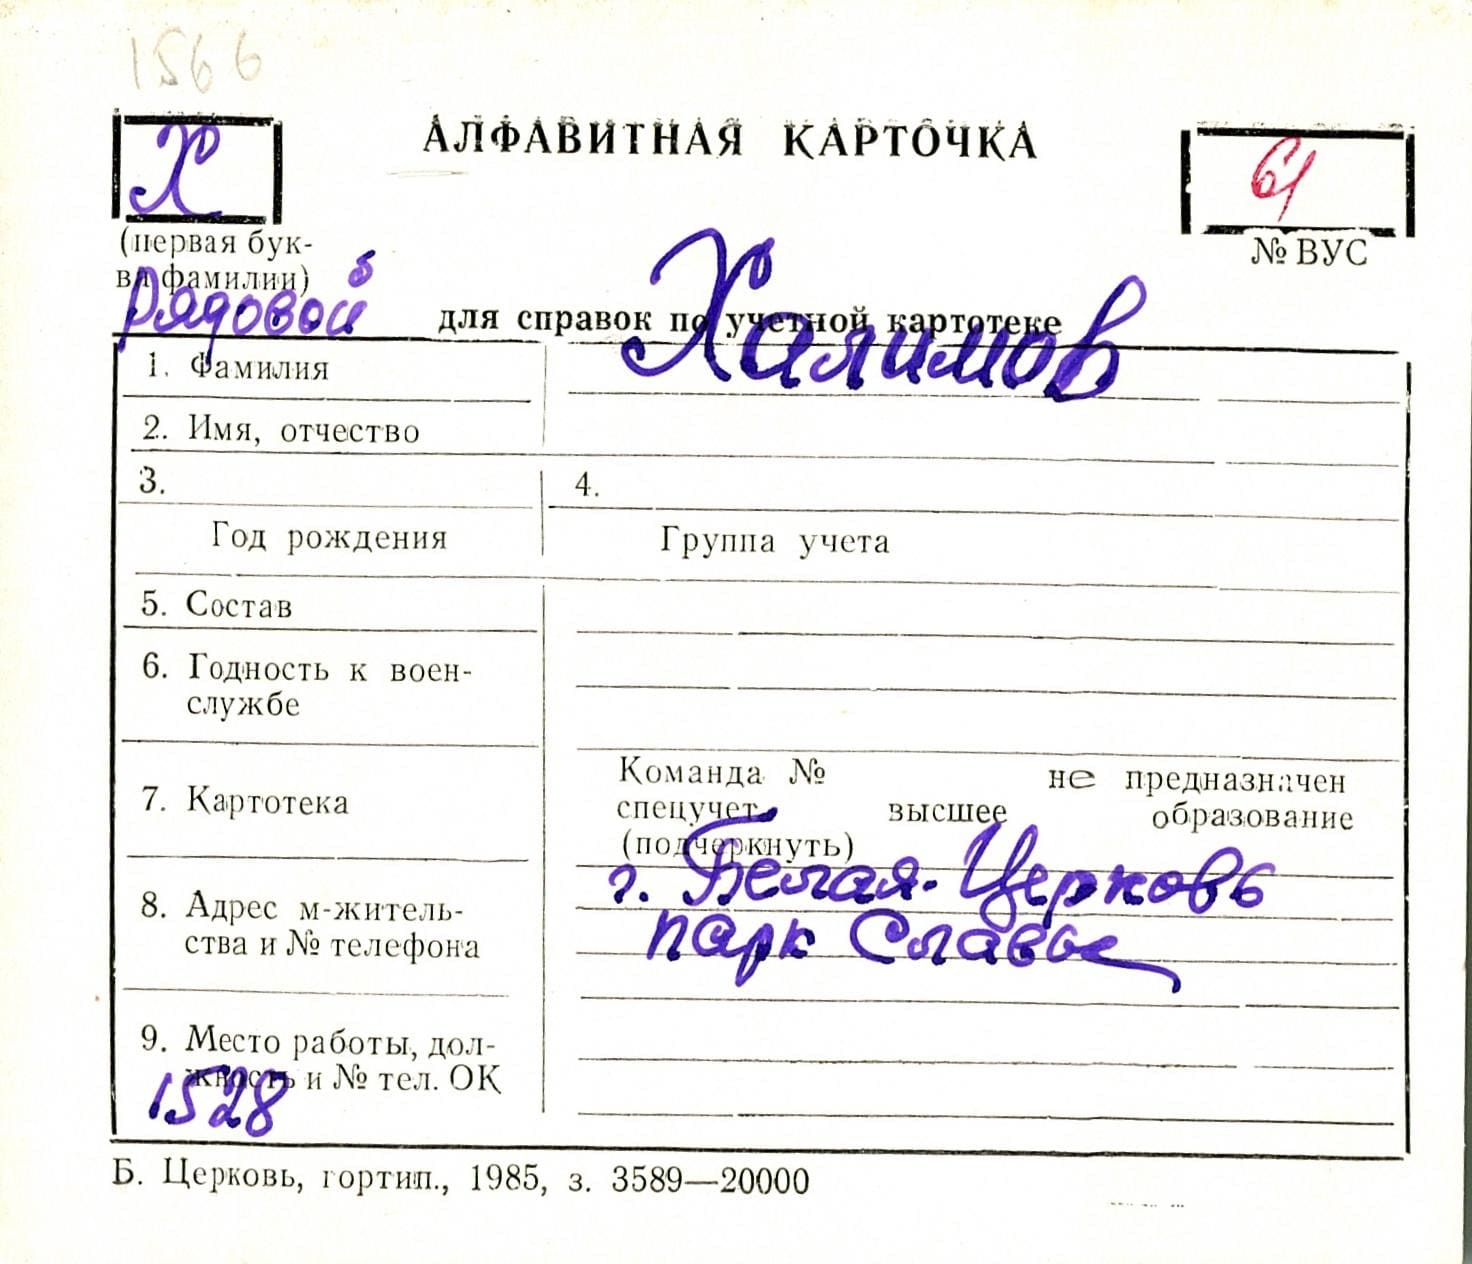 1566
Х
АЛФАВИТНАЯ КАРТОЧКА
61
(первая бук-
ва фамилии)
№ ВУС
Рядовой
для справок по учетной картотеке
Халимов
1. Фамилия
2. Имя, отчество
3.
4.
Год рождения
Группа учета
5. Состав
6. Годность к воен-
службе
7. Картотека
Команда № не предназначен
спецучет высшее образование
(подчеркнуть)
8. Адрес м-житель-
ства и № телефона
г. Белая-Церковь
парк Славы
9. Место работы, дол-
жность и № тел. ОК
1528
Б. Церковь, гортип., 1985, з. 3589—20000